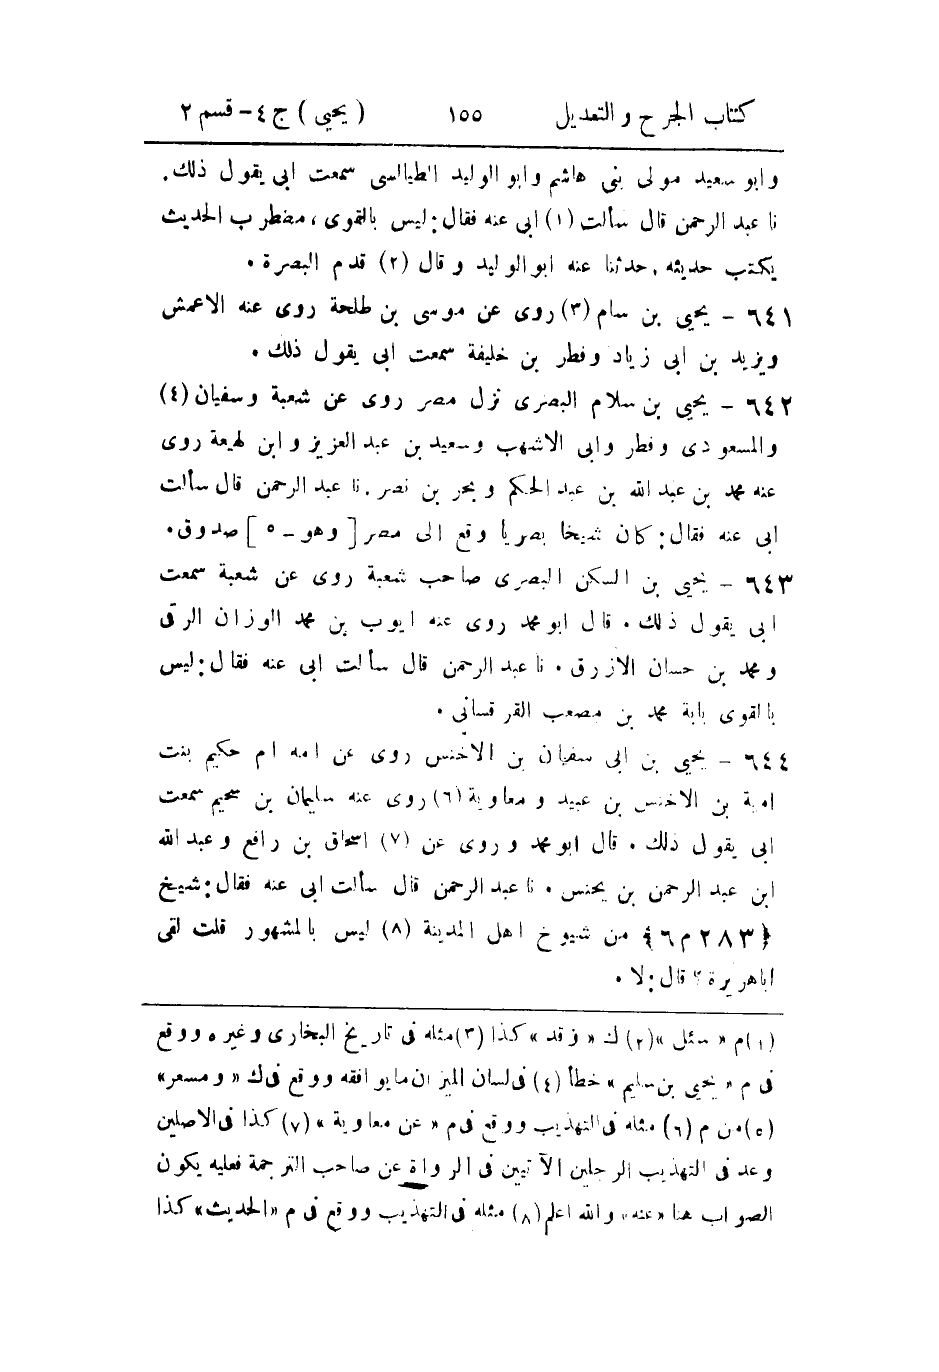 كتاب الجرح والتعديل ١٥٥ (يحيى) ج ٤ - قسم ٢
وابو سعيد مولى بنى هاشم وابو الوليد الطيالسى سمعت ابى يقول ذلك.
نا عبد الرحمن قال سألت (١) ابى عنه فقال: ليس بالقوى، مضطرب الحديث
يكتب حديثه. حدثنا عنه ابو الوليد وقال (٢) قدم البصرة .
٦٤١ - يحيى بن سام (٣) روى عن موسى بن طلحة روى عنه الاعمش
ويزيد بن ابى زياد وفطر بن خليفة سمعت ابى يقول ذلك .
٦٤٢ - يحيى بن سلام البصرى نزل مصر روى عن شعبة وسفيان (٤)
والمسعودى وفطر وابى الاشهب وسعيد بن عبد العزيز وابن لهيعة روى
عنه محمد بن عبد الله بن عبد الحكم وبحر بن نصر. نا عبد الرحمن قال سألت
ابى عنه فقال: كان شيخا بصريا وقع الى مصر [وهو - ٥] صدوق .
٦٤٣ - يحيى بن السكن البصرى صاحب شعبة روى عن شعبة سمعت
ابى يقول ذلك . قال ابو محمد روى عنه ايوب بن محمد الوزان الرقى
ومحمد بن حسان الازرق . نا عبد الرحمن قال سألت ابى عنه فقال: ليس
بالقوى بابة محمد بن مصعب القرقسانى .
٦٤٤ - يحيى بن ابى سفيان بن الاخنس روى عن امه ام حكيم بنت
امية بن الاخنس بن عبيد ومعاوية (٦) روى عنه سليمان بن سحيم سمعت
ابى يقول ذلك . قال ابو محمد وروى عن (٧) اسحاق بن رافع وعبد الله
ابن عبد الرحمن بن يحنس . نا عبد الرحمن قال سألت ابى عنه فقال: شيخ
{٢٨٣ م ٦} من شيوخ اهل المدينة (٨) ليس بالمشهور قلت لقى
اباهريرة؟ قال: لا .
(١) م «سئل» (٢) ك «وقد» كذا (٣) مثله فى تاريخ البخارى وغيره ووقع
فى م «يحيى بن سليم» خطأ (٤) فى لسان الميزان ما يوافقه ووقع فى ك «ومسعر»
(٥) من م (٦) مثله فى التهذيب ووقع فى م «عن معاوية» (٧) كذا فى الاصلين
وعد فى التهذيب الرجلين الآتيين فى الرواة عن صاحب الترجمة فعليه يكون
الصواب هنا «عنه» والله اعلم (٨) مثله فى التهذيب ووقع فى م «الحديث» كذا